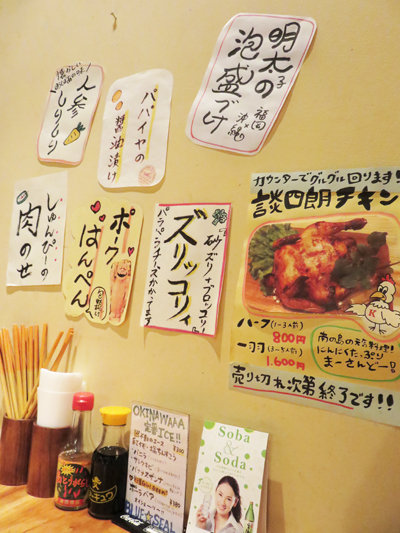 明太子の
泡盛づけ
福岡
沖縄
人参
しりしり
パパイヤの
醤油漬け
じゅんぴーの
肉のせ
ポーク
はんぺん
ズリッコリィ
砂ズリィブロッコリィ
パラペラチーズかかってます
カウンターでグルグル回ります!!
談四朗チキン
ハーフ (1~3人前)
800円
一羽 (3~5人前)
1.600円
南の島の元気料理!
にんにくたっぷり
まーさんどー!!
売り切れ次第終了です!!
K
OKINAWAAA
定番ICE!!
バニラ
BLUE SEAL
Soba
&
Soda.